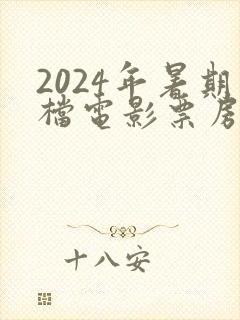 2024年暑期
檔電影票房
十八安